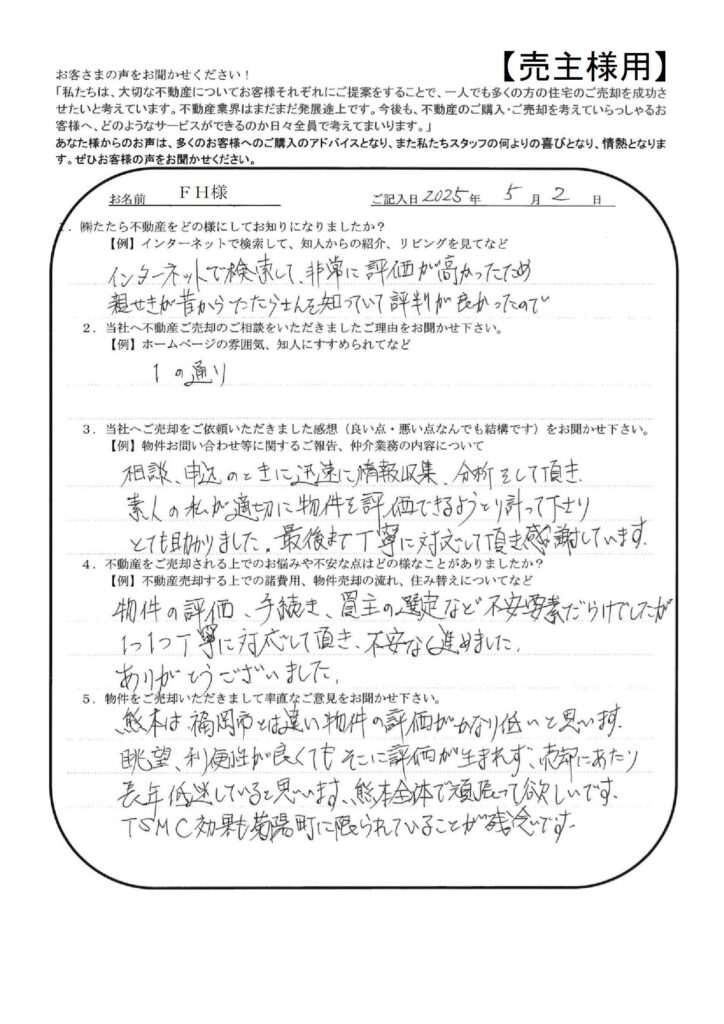 【売主様用】
お客さまの声をお聞かせください！
「私たちは、大切な不動産についてお客様それぞれにご提案をすることで、一人でも多くの方の住宅のご売却を成功さ
せたいと考えています。不動産業界はまだまだ発展途上です。今後も、不動産のご購入・ご売却を考えていらっしゃるお
客様へ、どのようなサービスができるのか日々全員で考えてまいります。」
あなた様からのお声は、多くのお客様へのご購入のアドバイスとなり、また私たちスタッフの何よりの喜びとなり、情熱となりま
す。ぜひお客様の声をお聞かせください。
お名前 ＦＨ様 ご記入日 2025 年 5 月 2 日
1．㈱たたら不動産をどの様にしてお知りになりましたか？
【例】インターネットで検索して、知人からの紹介、リビングを見てなど
インターネットで検索して、非常に評価が高かったため
親せきが昔からたたらさんを知っていて評判が良かったので
2．当社へ不動産ご売却のご相談をいただきましたご理由をお聞かせ下さい。
【例】ホームページの雰囲気、知人にすすめられてなど
1の通り
3．当社へご売却をご依頼いただきました感想（良い点・悪い点なんでも結構です）をお聞かせ下さい。
【例】物件お問い合わせ等に関するご報告、仲介業務の内容について
相談、申込のときに迅速に情報収集、分析をして頂き
素人の私が適切に物件を評価できるようとり計って下さり
とても助かりました。最後まで丁寧に対応して頂き感謝しています。
4．不動産をご売却される上でのお悩みや不安な点はどの様なことがありましたか？
【例】不動産売却する上での諸費用、物件売却の流れ、住み替えについてなど
物件の評価、手続き、買主の選定など不安要素だらけでしたが
1つ1つ丁寧に対応して頂き、不安なく進めました。
ありがとうございました。
5．物件をご売却いただきまして率直なご意見をお聞かせ下さい。
熊本は福岡市とは違い物件の評価がかなり低いと思います。
眺望、利便性が良くてもそこに評価が生まれず、売却にあたり
長年低迷していると思います、熊本全体で頑張って欲しいです。
TSMC効果も菊陽町に限られていることが残念です。